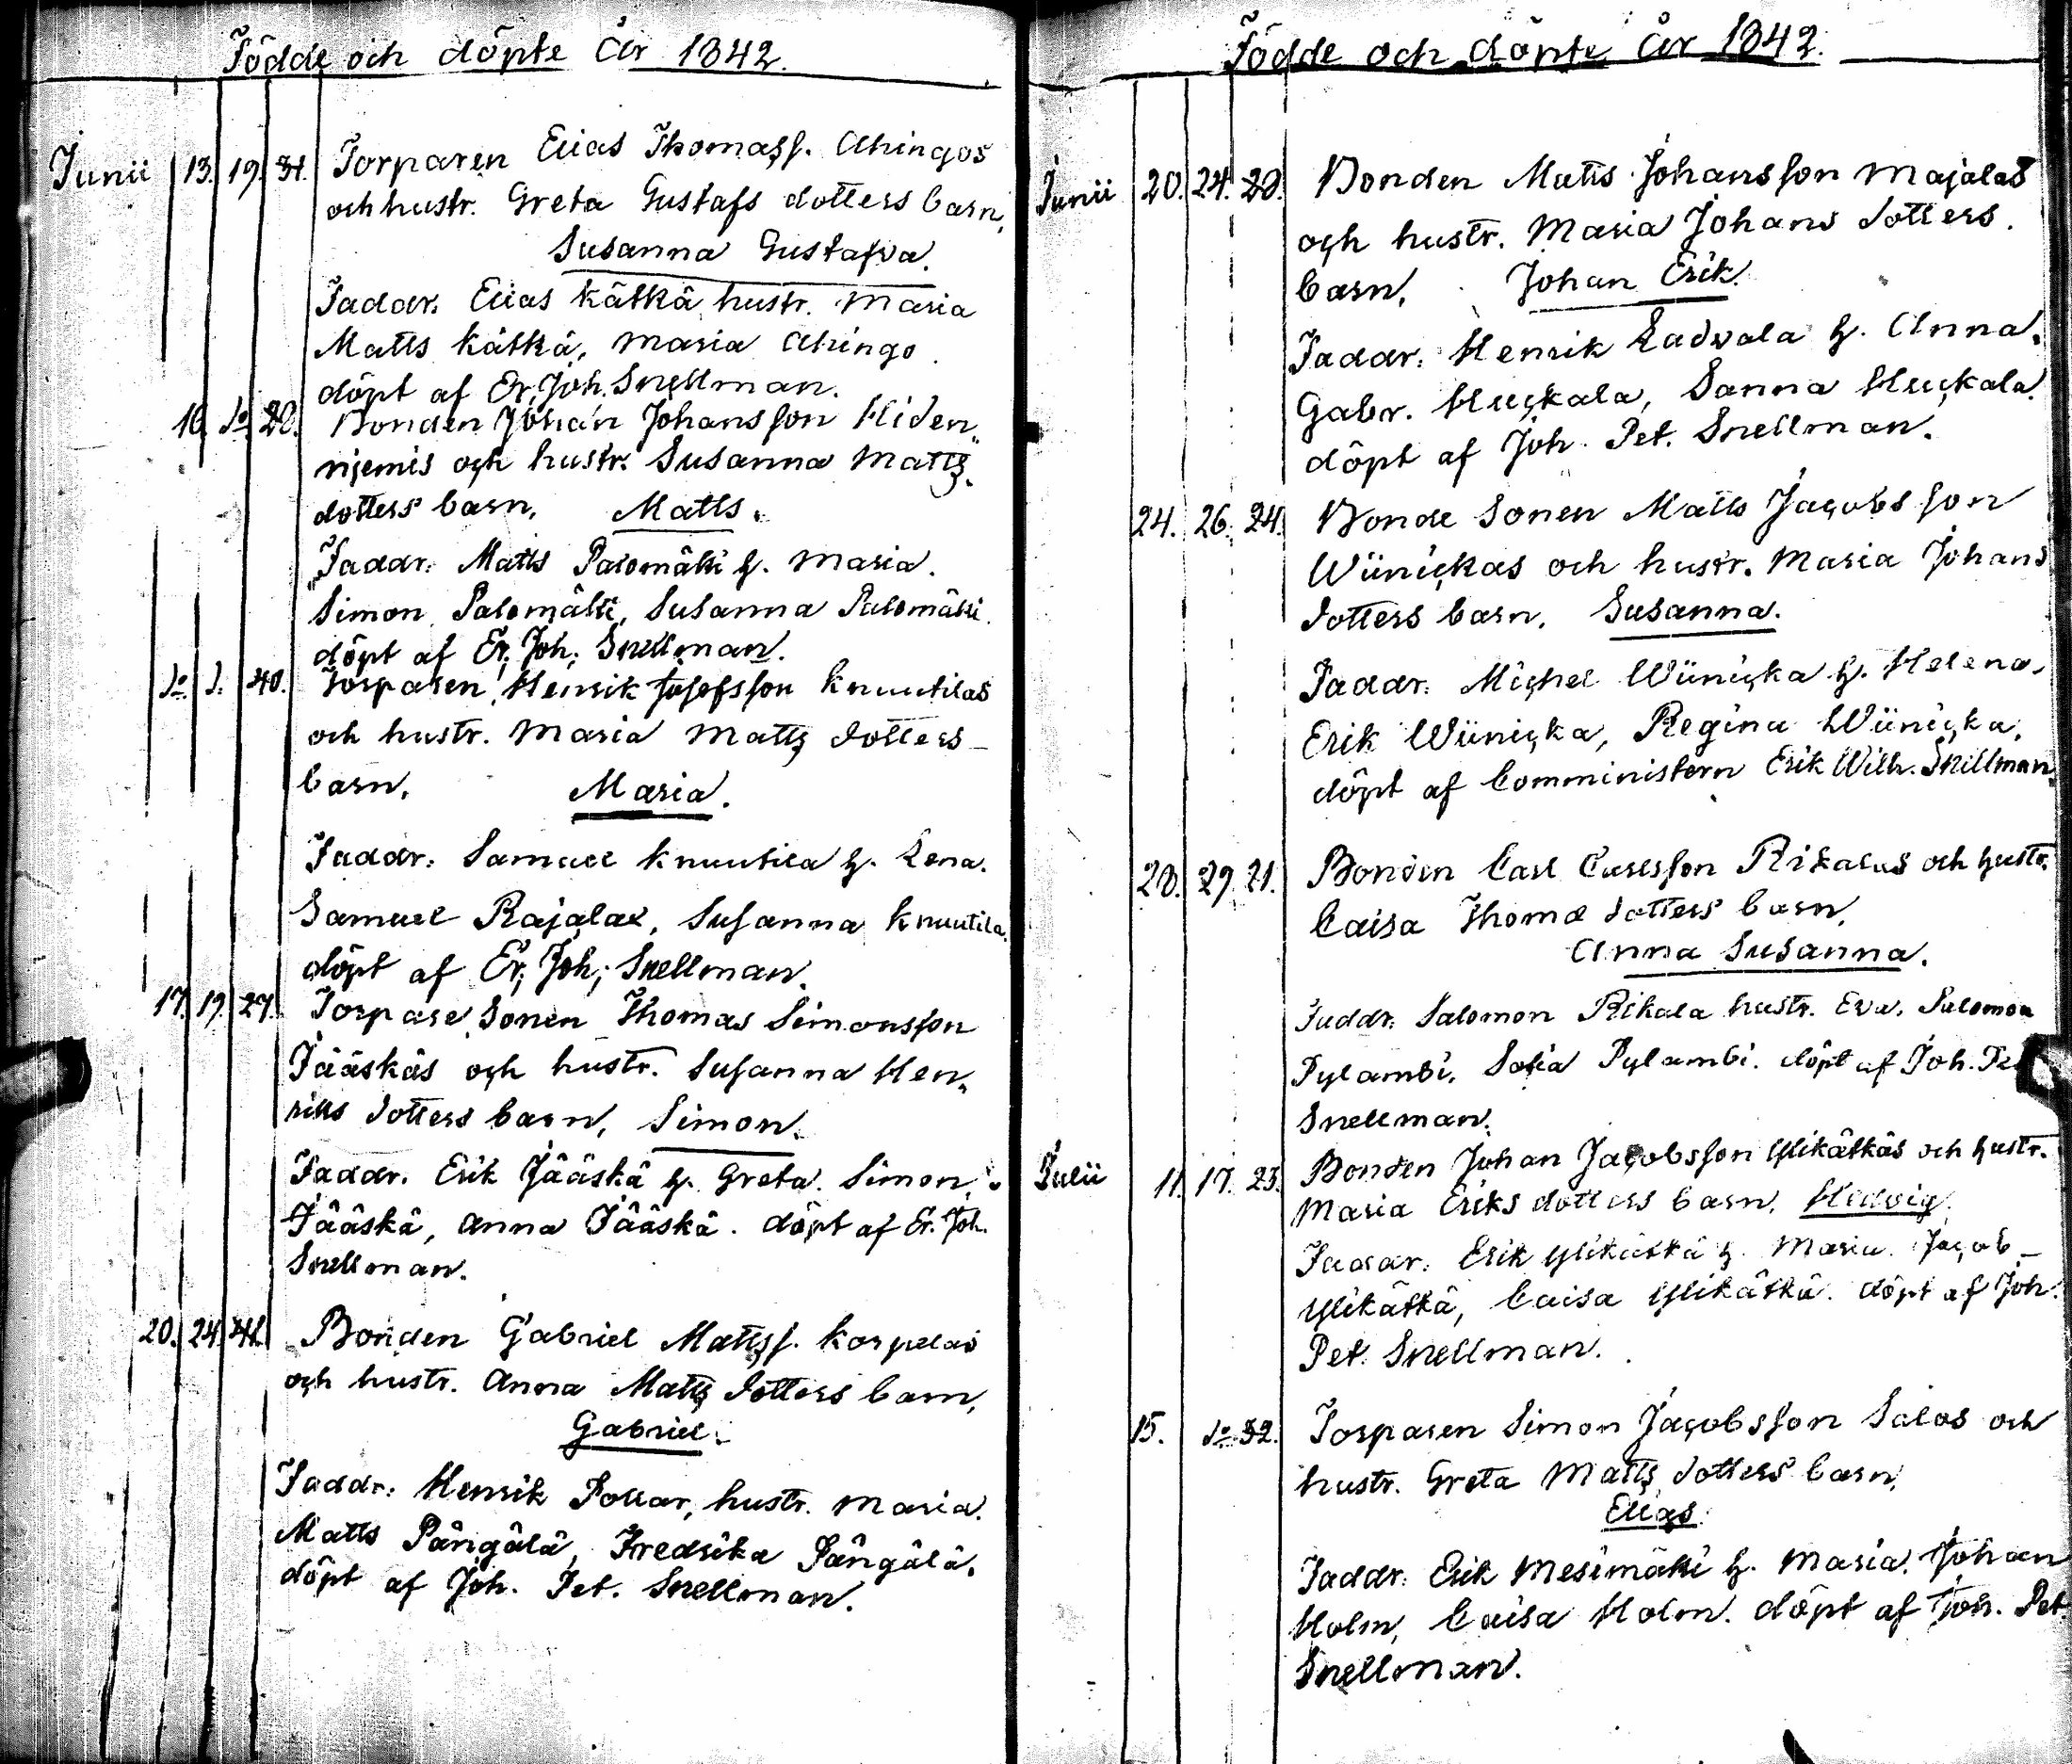 Födde och döpte år 1842.
Junii 13. 19. 31. Torparen Elias Thomass. Ahingos
och hustr. Greta Gustafs dotters barn,
Susanna Gustafva.
Faddr. Elias Kätkä hustr. Maria
Matts Kätkä, Maria Ahingo.
döpt af Er. Joh. Snellman.
16. do 28. Bonden Johan Johansson Hiden„
njemis och hustr. Susanna Matts.
dotters barn, Matts.
Faddr: Matts Palomäki h. Maria.
Simon Palomäki, Susanna Palomäki.
döpt af Er. Joh; Snellman.
do d. 40. Torparen Henrik Josefsson Knuutilas
och hustr. Maria Matts dotters
barn, Maria.
Faddr: Samuel Knuutila h. Lena.
Samuel Rajalas, Susanna Knuutila.
döpt af Er; Joh; Snellman.
17. 19. 27. Torpare Sonen Thomas Simonsson
Jääskäs och hustr. Susanna Hen„
riks dotters barn, Simon.
Faddr. Erik Jääskä h. Greta. Simon
Jääskä, Anna Jääskä. döpt af Er. Joh.
Snellman.
20. 24. 42. Bonden Gabriel Mattss. Korpelas
och hustr. Anna Matts dotters barn,
Gabriel.
Faddr: Henrik Pollar, hustr. Maria.
Matts Pängälä, Fredrika Pängälä.
döpt af Joh. Pet. Snellman.
Födde och döpte år 1842.
Junii 20. 24. 28. Bonden Matts Johansson Majalas
och hustr. Maria Johans dotters.
barn, Johan Erik.
Faddr: Henrik Ladvala h. Anna.
Gabr. Huckala, Sanna Huckala.
döpt af Joh. Pet. Snellman.
24. 26. 24. Bonde Sonen Matts Jacobsson
Wiinickas och hustr. Maria Johans
dotters barn, Susanna.
Faddr: Michel Wiinicka h. Helena,
Erik Wiinicka, Regina Wiinicka,
döpt af Comministern Erik Wilh. Snellman.
28. 29. 21. Bonden Carl Carlsson Rikalas och hustr.
Caisa Thomæ dotters barn,
Anna Susanna.
Faddr: Salomon Rikala hustr. Eva. Salomon
Pylambi, Sofia Pylambi. döpt af Joh. Pet
Snellman.
Julii 11. 17. 23. Bonden Johan Jacobsson Ylikätkäs och hustr.
Maria Eriks dotters barn, Hedvig.
Faddr: Erik Ylikätkä h. Maria. Jacob
Ylikätkä, Caisa Ylikätkä. döpt af Joh.
Pet. Snellman.
15. do 32. Torparen Simon Jacobsson Salos och
hustr. Greta Matts dotters barn,
Elias.
Faddr: Erik Mesimäki h. Maria. Johan
Holm, Caisa Holm. döpt af Joh. Pet
Snellman.